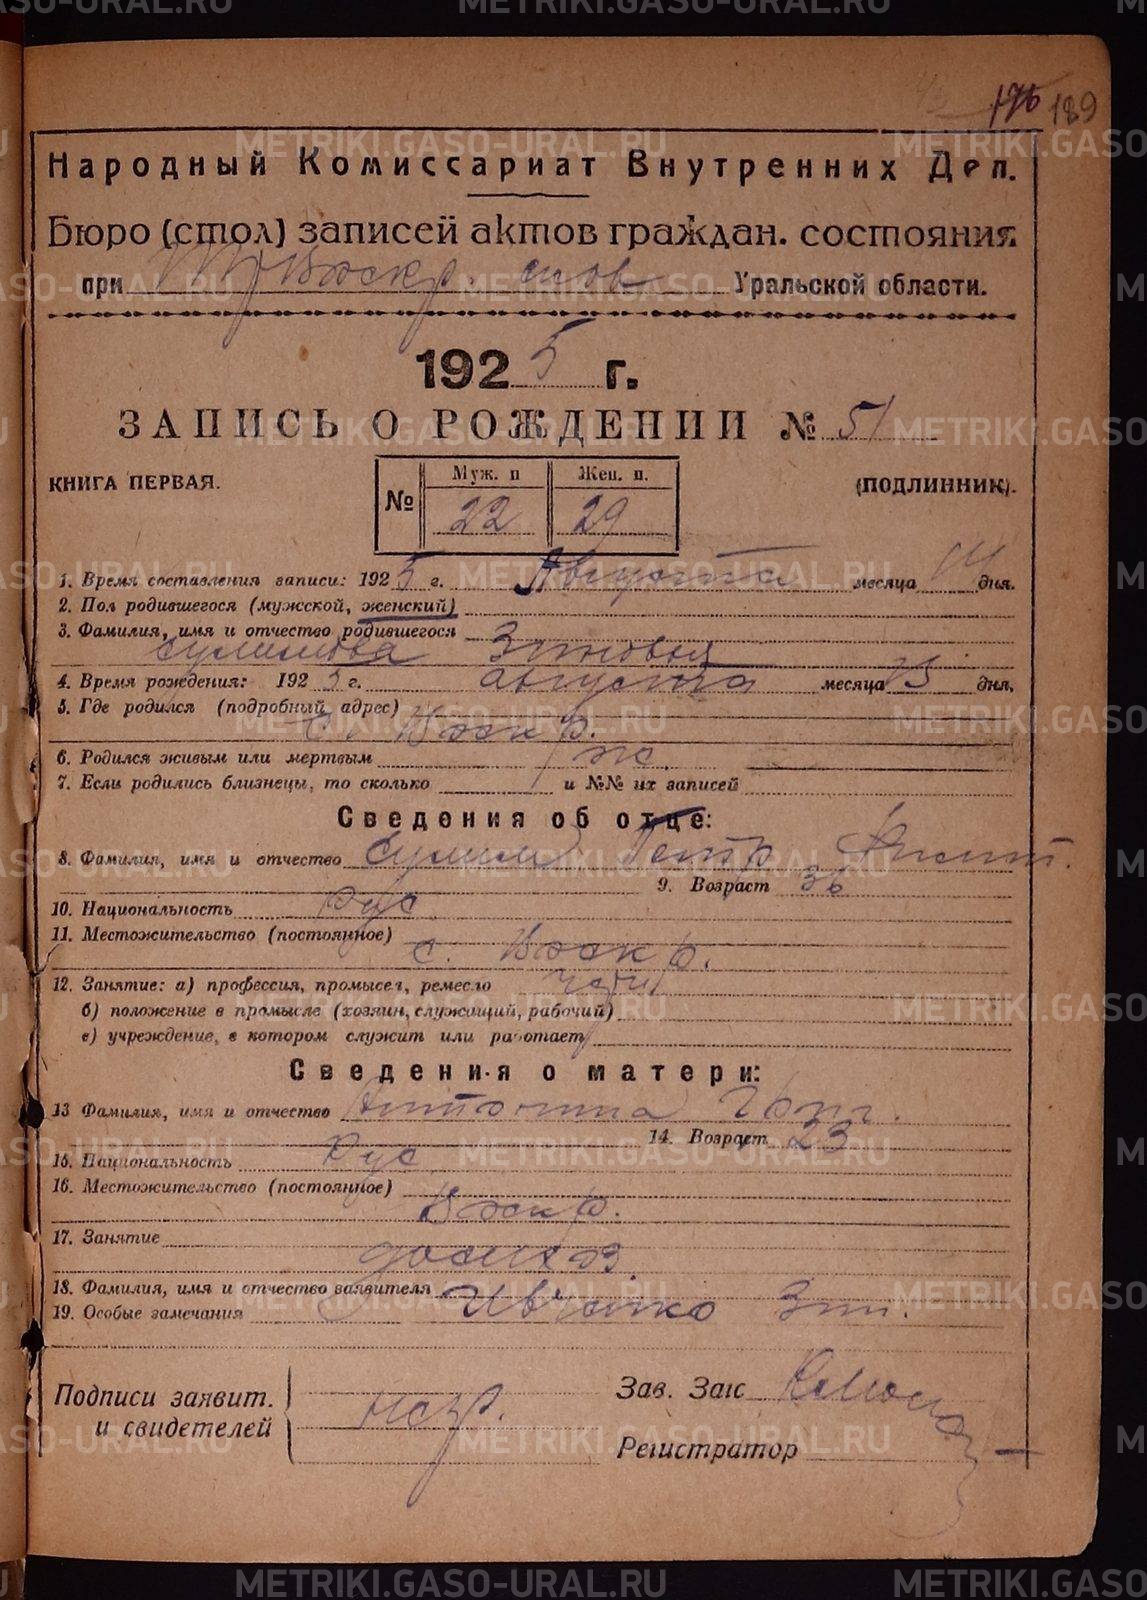 METRIKI.GASO-URAL.RU
189
Народный Комиссариат Внутренних Дел.
Бюро (стол) записей актов граждан. состояния
при Воскр. Уральской области.
1925 г.
ЗАПИСЬ О РОЖДЕНИИ № 51
КНИГА ПЕРВАЯ. (ПОДЛИННИК).
№ Муж. п Жен. п.
22 29
1. Время составления записи: 1925 г. Августа месяца 14 дня.
2. Пол родившегося (мужской, женский)
3. Фамилия, имя и отчество родившегося
Сулимова Зиновья
4. Время рождения: 1925 г. августа месяца 13 дня.
5. Где родился (подробный адрес)
с. Воскр.
6. Родился живым или мертвым ж.
7. Если родились близнецы, то сколько и №№ их записей
Сведения об отце:
8. Фамилия, имя и отчество Сулим Петр
9. Возраст 36
10. Национальность Рус
11. Местожительство (постоянное)
с. Воскр.
12. Занятие: а) профессия, промысел, ремесло
б) положение в промысле (хозяин, служащий, рабочий)
в) учреждение, в котором служит или работает
Сведения о матери:
13 Фамилия, имя и отчество Антонина
14. Возраст 23
15. Национальность Рус
16. Местожительство (постоянное)
Воскр.
17. Занятие
домхоз.
18. Фамилия, имя и отчество заявителя
19. Особые замечания Ивченко Зин.
Подписи заявит.
и свидетелей
негр.
Зав. Загс
Регистратор